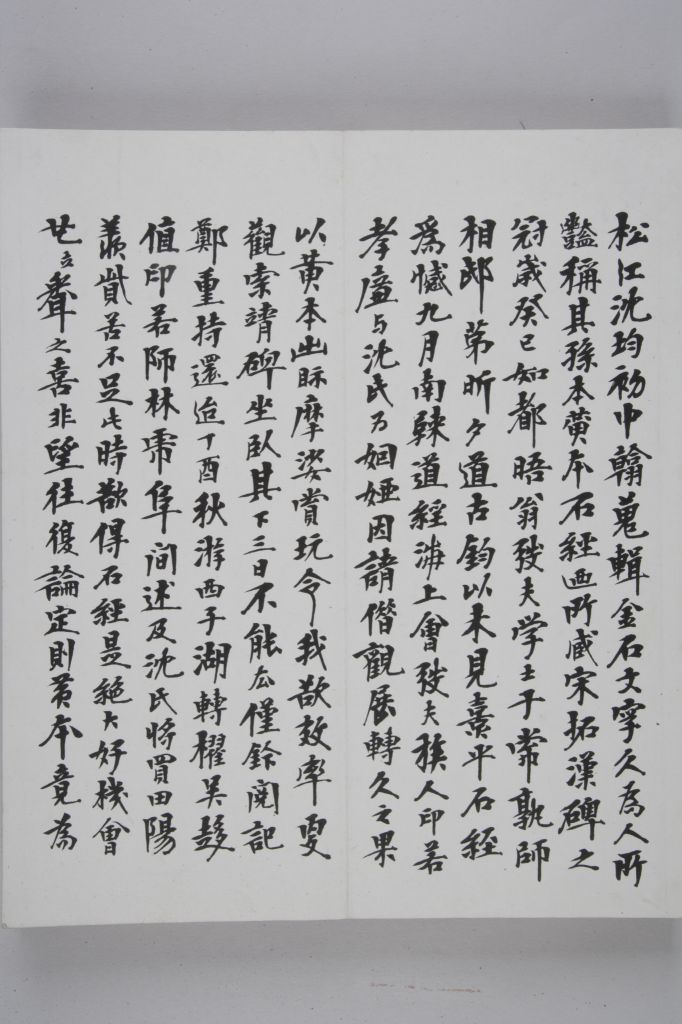 松江沈均初中翰蒐輯金石文字久為人所
豔稱其孫本黃本石經西所藏宋拓漢碑之
冠歲癸巳如都晤翁弢夫学士于常孰師
相邸第昕夕道古鈞以未見熹平石經
為憾九月南歸道經海上會弢夫族人印若
孝廉与沈氏為姻婭因請借觀展轉久之果
以黃本出眎摩挲賞玩令我欲效率更
觀索靖碑坐臥其下三日不能去僅鈐閱記
鄭重持還迨丁酉秋游西子湖轉櫂吳趨
值印若師林寓阜間述及沈氏將買田陽
羨貲苦不足此時欲得石經是絕大好機會
聾之喜非望往復論定則黃本竟為